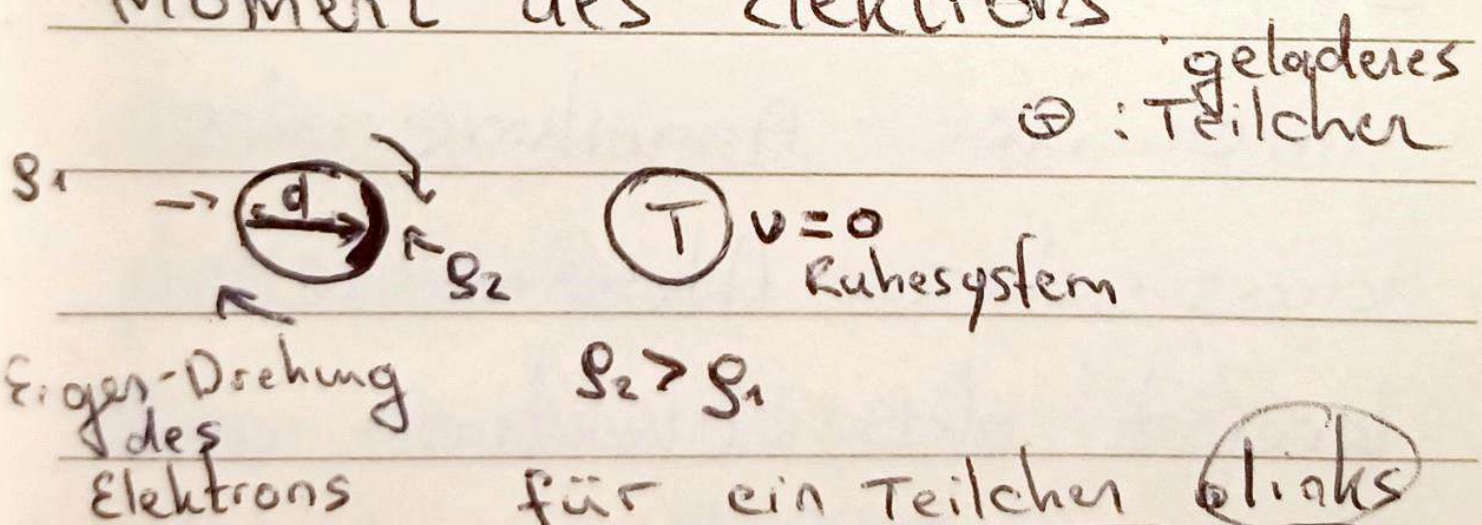 Moment des Elektrons
geladenes
⊖ : Teilchen
ρ1
d
ρ2
T v = 0
Ruhesystem
Eigen-Drehung
des
Elektrons
ρ2 > ρ1
für ein Teilchen links